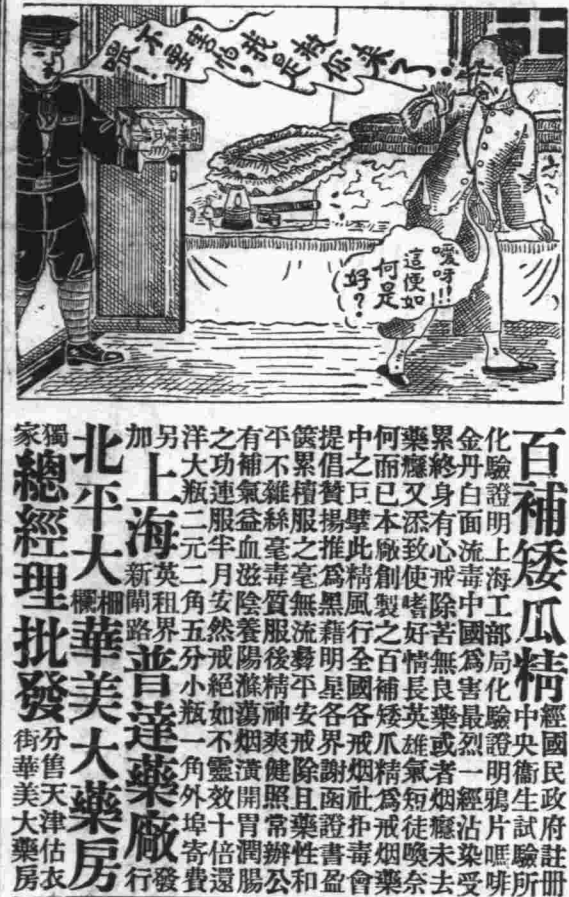 嘿！不要害怕，我是救你来了！
噯呀!!!
這便如
何是
好？
百補矮瓜精 經國民政府註冊
中央衞生試驗所
化驗證明上海工部局化驗證明鴉片嗎啡
金丹白面流毒中國爲害最烈一經沾染受
累終身有心戒除苦無良藥或者烟癮未去
藥癮又添致使嗜好情長英雄氣短徒喚奈
何而已本廠創製之百補矮瓜精爲戒烟藥
中之巨擘此精風行全國各戒烟社拒毒會
提倡贊揚推爲黑藉明星各界謝函證書盈
篋累櫝服之毫無流弊平安戒除且藥性和
平不雜絲毫毒質服後精神爽健照常辦公
有補氣益血滋陰養陽滌蕩烟漬開胃潤腸
之功連服半月安然戒絕如不靈效十倍還
洋大瓶二元二角五分小瓶一角外埠寄費
另加 上海英租界新閘路普達藥廠發行
北平大柵欄華美大藥房
獨家總經理批發 分售天津估衣街華美大藥房